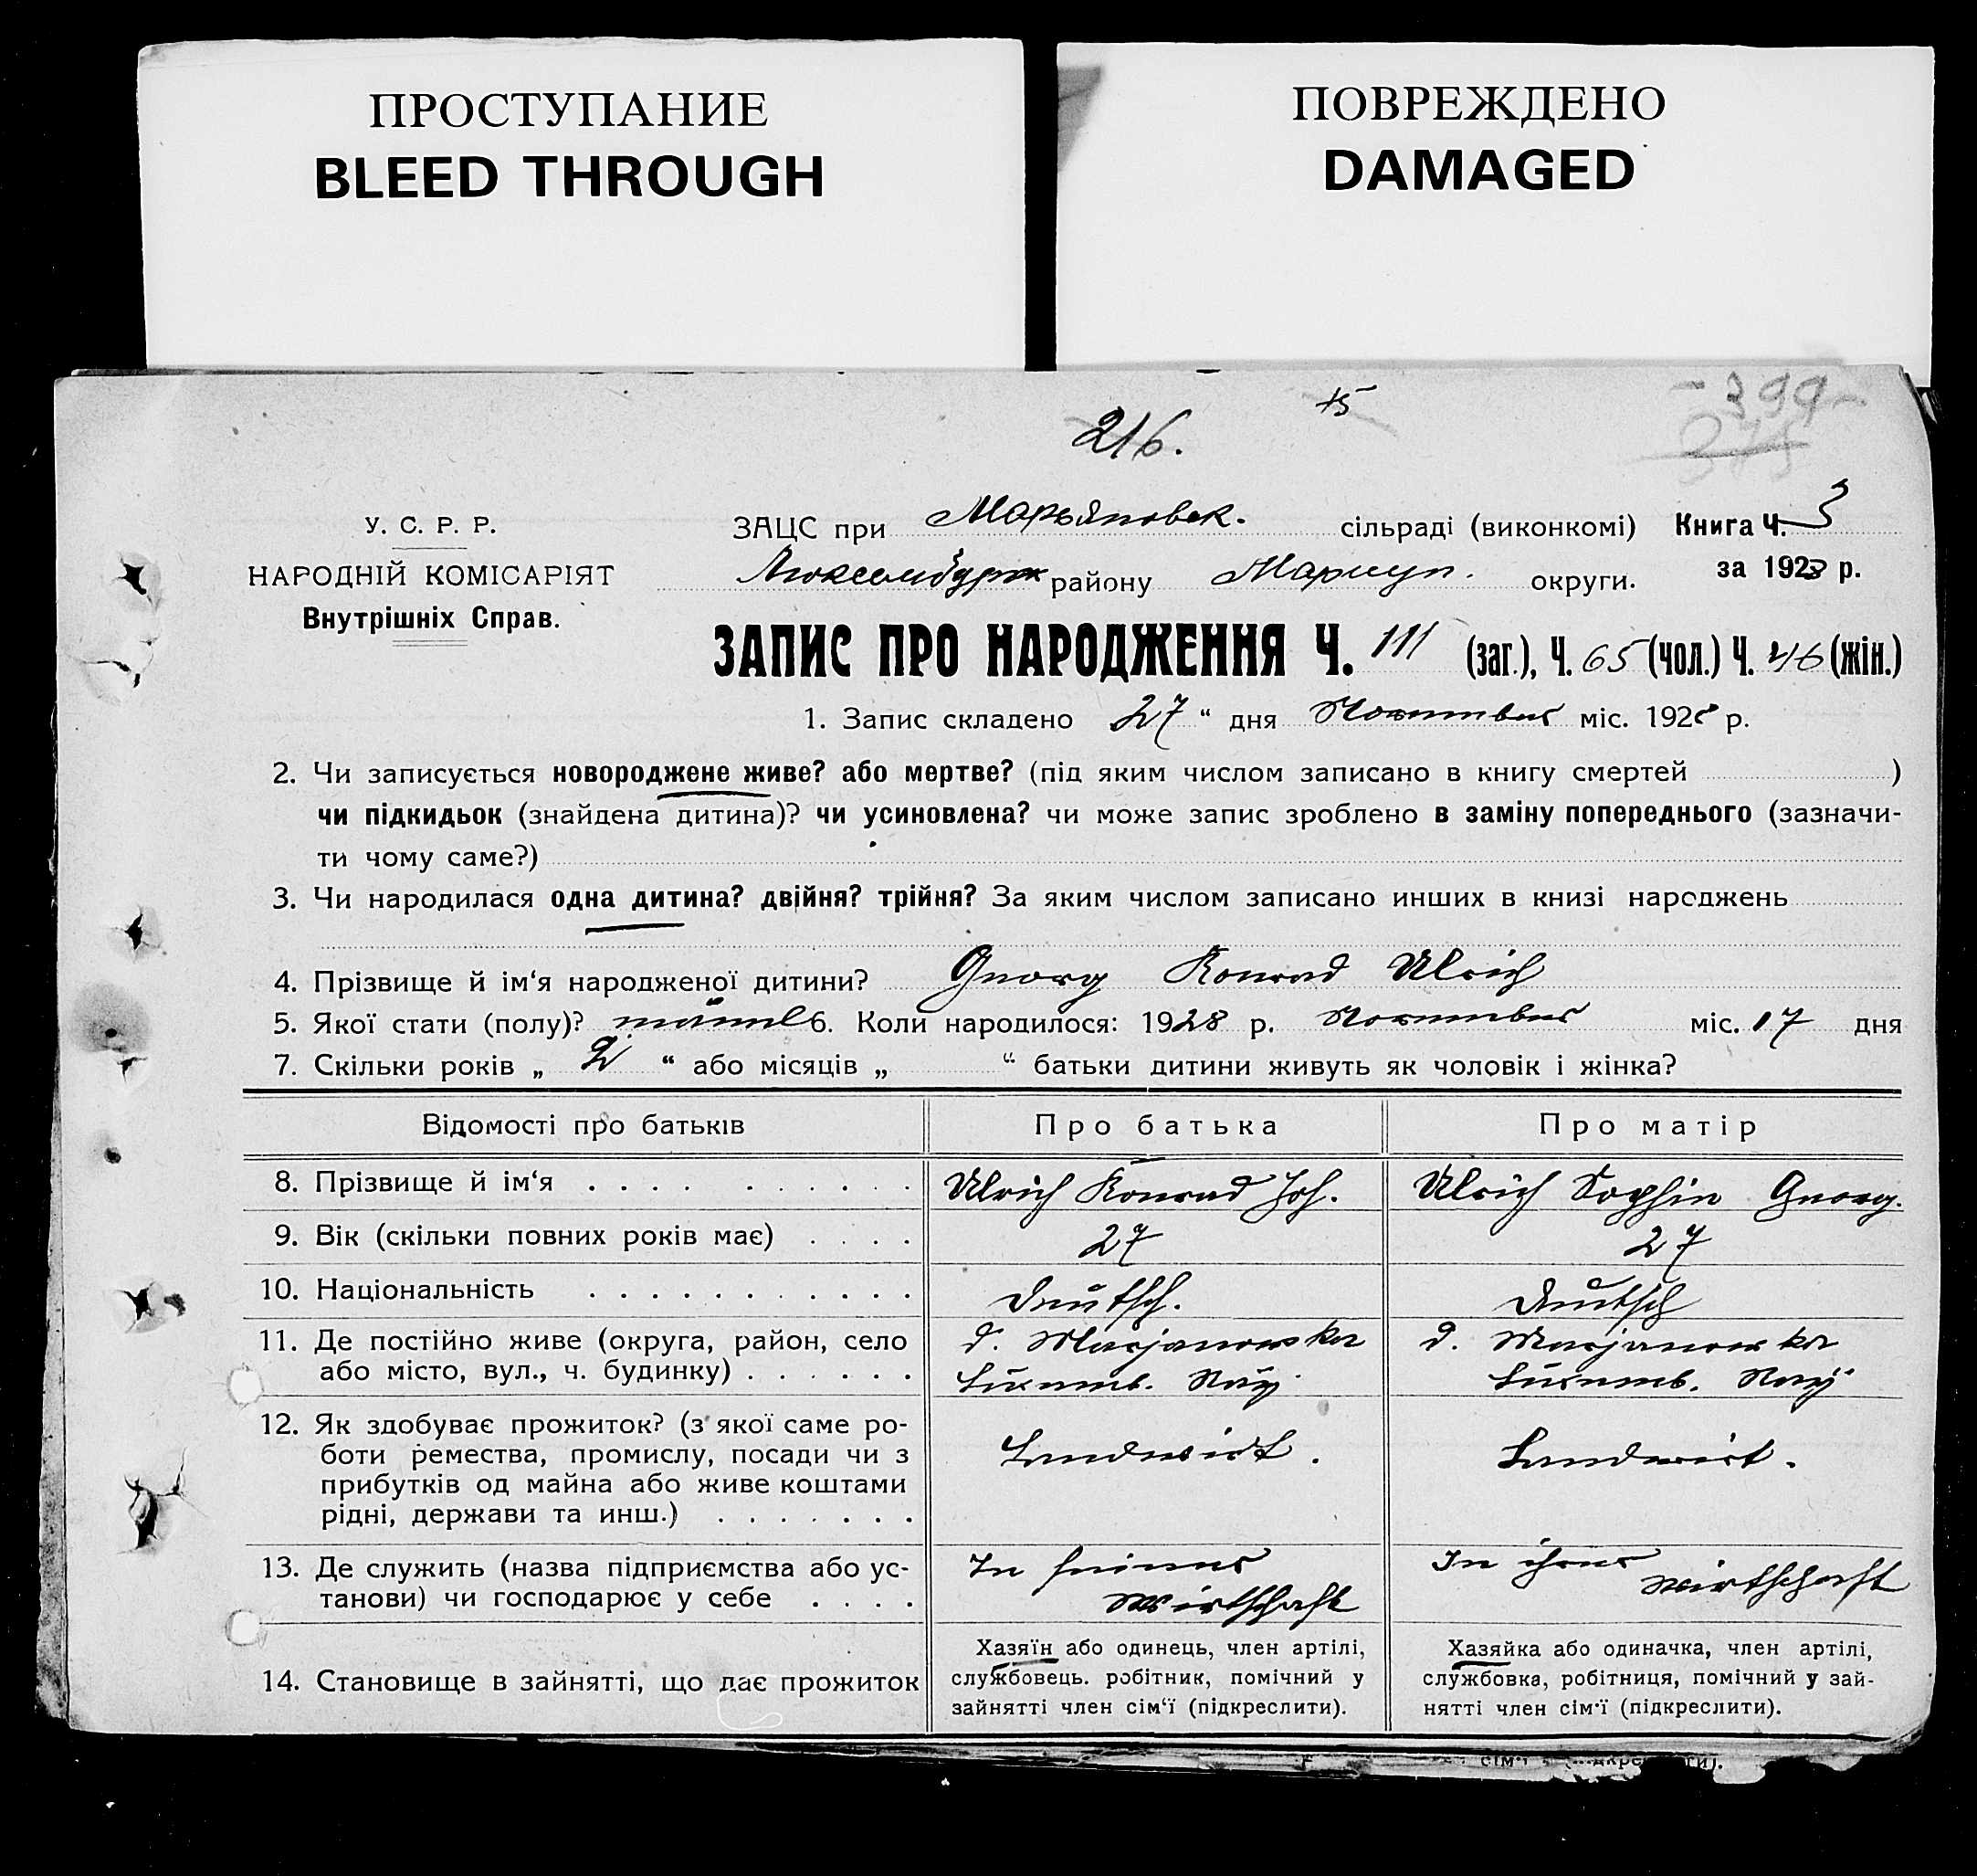 ПРОСТУПАНИЕ
BLEED THROUGH
ПОВРЕЖДЕНО
DAMAGED
15
- 399 -
216.
У. С. Р. Р.
НАРОДНІЙ КОМІСАРІЯТ
Внутрішніх Справ.
ЗАЦС при Марьяновск. сільраді (виконкомі) Книга Ч. 3
району Мариуп. округи. за 1928 р.
ЗАПИС ПРО НАРОДЖЕННЯ Ч. 111 (заг.), Ч. 65 (чол.) Ч. 46 (жін.)
1. Запис складено 27 “ дня November міс. 1928 р.
2. Чи записується новороджене живе? або мертве? (під яким числом записано в книгу смертей )
чи підкидьок (знайдена дитина)? чи усиновлена? чи може запис зроблено в заміну попереднього (зазначи-
ти чому саме?)
3. Чи народилася одна дитина? двійня? трійня? За яким числом записано инших в книзі народжень
4. Прізвище й ім‘я народженої дитини? Georg Konrad Ulrich
5. Якої стати (полу)? männl 6. Коли народилося: 1928 р. November міс. 17 дня
7. Скільки років „ 2 “ або місяців „ “ батьки дитини живуть як чоловік і жінка?
Відомості про батьків Про батька Про матір
8. Прізвище й ім‘я . . . . . . . . . . Ulrich Konrad Joh. Ulrich Sophie Georg.
9. Вік (скільки повних років має) . . . . 27 27
10. Національність . . . . . . . . . . . Deutsch. Deutsch
11. Де постійно живе (округа, район, село d. Marjanowka d. Marjanowka
або місто, вул., ч. будинку) . . . . . . Luxemb. Ray. Luxemb. Ray.
12. Як здобуває прожиток? (з якої саме ро-
боти ремества, промислу, посади чи з Landwirt. Landwirt.
прибутків од майна або живе коштами
рідні, держави та инш.) . . . . . . .
13. Де служить (назва підприємства або ус- In seiner In ihrer
танови) чи господарює у себе . . . . Wirtschaft Wirtschaft
14. Становище в зайнятті, що дає прожиток
Хазяїн або одинець, член артілі,
службовець. робітник, помічний у
зайнятті член сім‘ї (підкреслити).
Хазяйка або одиначка, член артілі,
службовка, робітниця, помічний у зай-
нятті член сім‘ї (підкреслити).